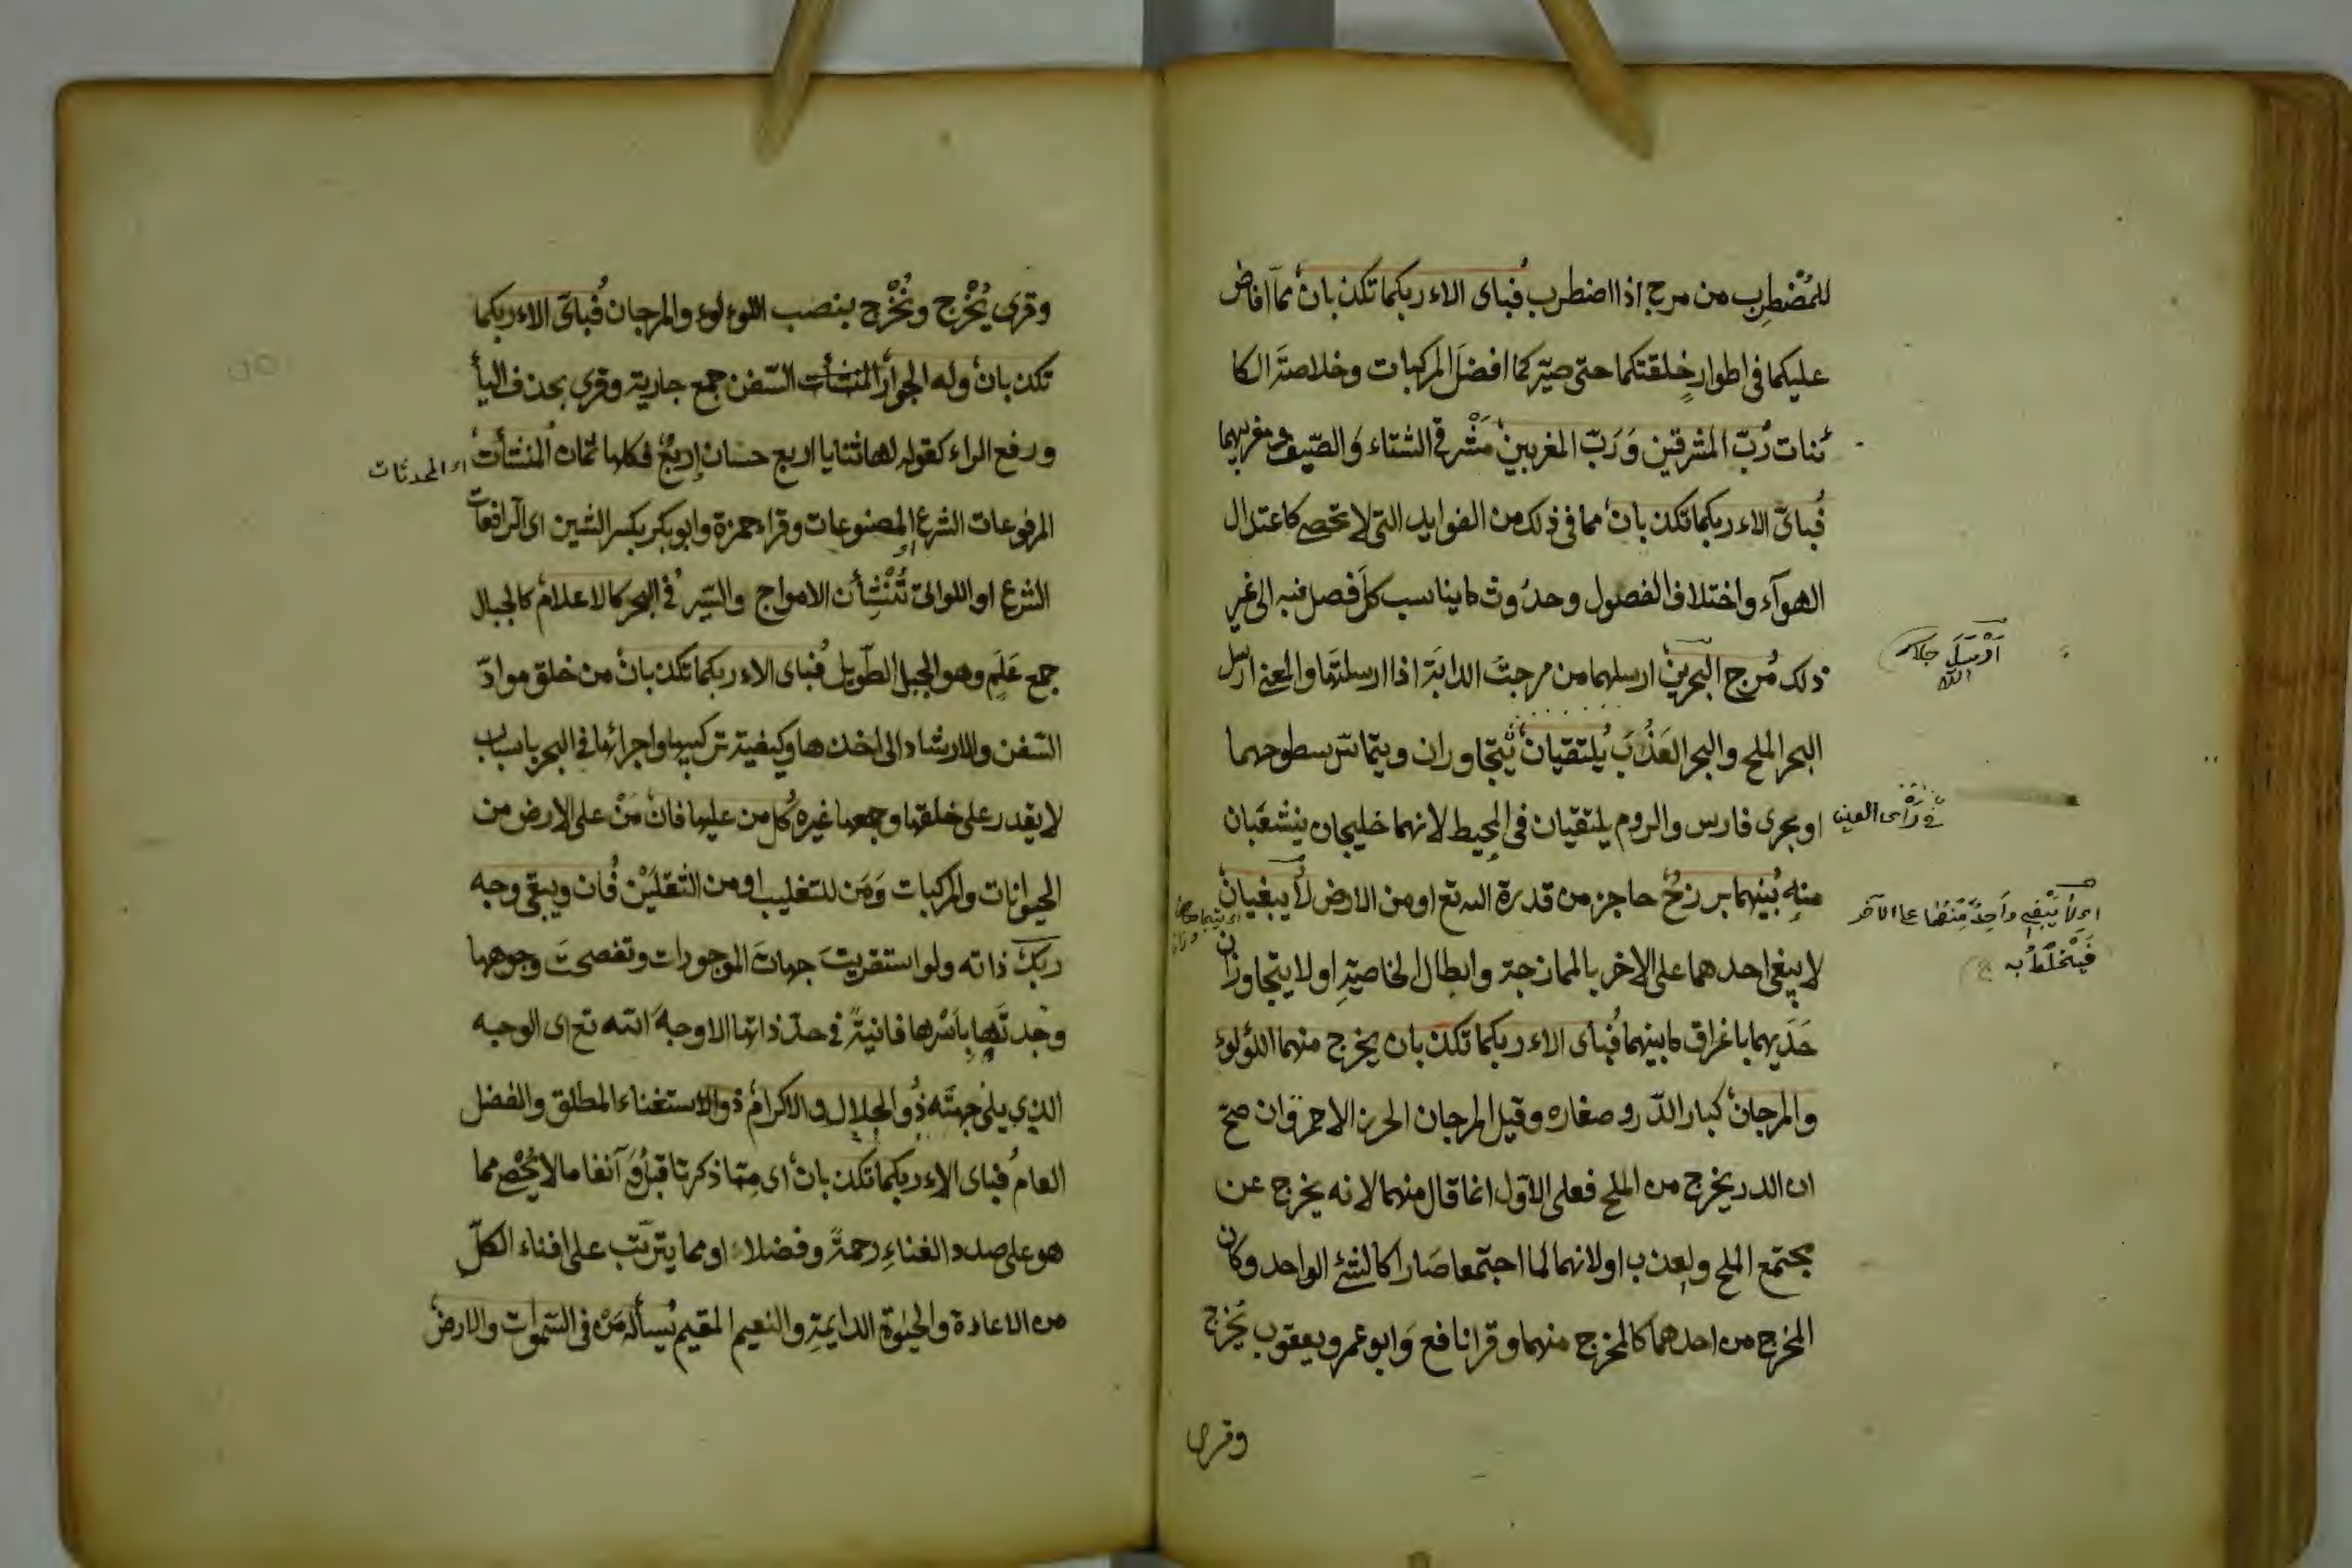 للمُضْطرِب من مرج اذا اضطرب فباى الاء ربكما تكذبان مما افاض
عليكما فى اطوار خلقتكما حتى صيّركما افضلَ المركبات وخلاصتَ الكا
ئنات رَبّ المشرقين وَرَبّ المغربين مَشْرقى الشتاء وَالصّيف ومغربيهما
فباىّ الاء ربكما تكذبان مما فى ذلك من الفوايد التى لا تحصى كاعتدال
الهوآء واختلاف الفصول وحدُوث ما يناسب كلَ فصل فيه الى غير
ذلك مَرج البحرين ارسلهما من مرجتَ الدابَة اذا ارسلتَها والمعنى ارسل
البحر الملح والبحر العَذْبَ يلتقيان يتجاوران ويتماسّ سطوحهما
او بحرى فارس والروم يلتقيان فى المحيط لانهما خليجان ينشعَبان
فى رَأى العين
منهِ بينهما برزخٌ حاجز من قدرة الله تع او من الارض لا يبغيان
او لَا يَبْغِى وَاحِدٌ مِنْهُمَا على الآخر
فَيَخْتَلِطُ به
لا يبغى احدهما على الاخر بالممازجة وابطال الخاصيّةِ او لا يتجاوزان
حَدَيهما باغراق ما بينهما فباى الاء ربكما تكذبان يخرج منهما اللؤلوء
والمرجان كبار الدّر وصغاره وقيل المرجان الخرز الاحمر وان صحّ
ان الدر يخرج من الملح فعلى الاوّل انما قال منهما لانه يخرج عن
مجتمع الملح والعذب او لانهما لما اجتمعا صَارا كالشئ الواحد وكان
المخرج من احدهما كالمخرج منهما وقرا نافع وَابو عمرو يعقوب يُخْرَج
وقرى
وقرى يُخْرِج ونُخْرِج بنصب اللوءلوء والمرجان فباىّ الاء ربكما
تكذبان وله الجوار المنشأت السّفن جمع جارية وقرى بحذف اليأ
ورفع الراء كقوله لها ثنايا اربع حسان اربعٌ فكلها ثمان المنشأت
او المحدثات
المرفوعات الشرع او المصنوعات وقراء حمزة وابو بكر بكسر الشين اى الرافعات
الشرع او اللواتى تُنْشِأن الامواج والسّير فى البحر كالاعلام كالجبال
جمع عَلَمٍ وهو الجبل الطّويل فباى الاء ربكما تكذبان من خلق موادّ
السّفن والارشاد الى اخذها وكيفية تركيبها واجرائها فى البحر باسباب
لا يقدر على خلقها وجمعها غيره كل من عليها فان مَنْ على الارض من
الحيوانات والمركبات وَمَن للتغليب او من الثقلَيْن فان ويبقى وجه
ربك ذاته ولو استقريتَ جهاتَ الموجودات وتفصحتَ وجوهها
وجدتَها بِاَسْرها فانيةً فى حدّ ذاتها الا وجهَ الله تع اى الوجه
الذى يلى جهتَه ذو الجلال والاكرام ذو الاستغناء المطلق والفضل
العام فباى الاء ربكما تكذبان اى مِمّا ذكرنا قبلُ وَ آنفا ما لا يُحْصى مما
هو على صدد الفناءِ رحمةً وفضلا او مما يترتّب على افناء الكلّ
من الاعادة والحيوة الدايمةِ والنعيم المقيم يسأله مَنْ فى السّموات والارض